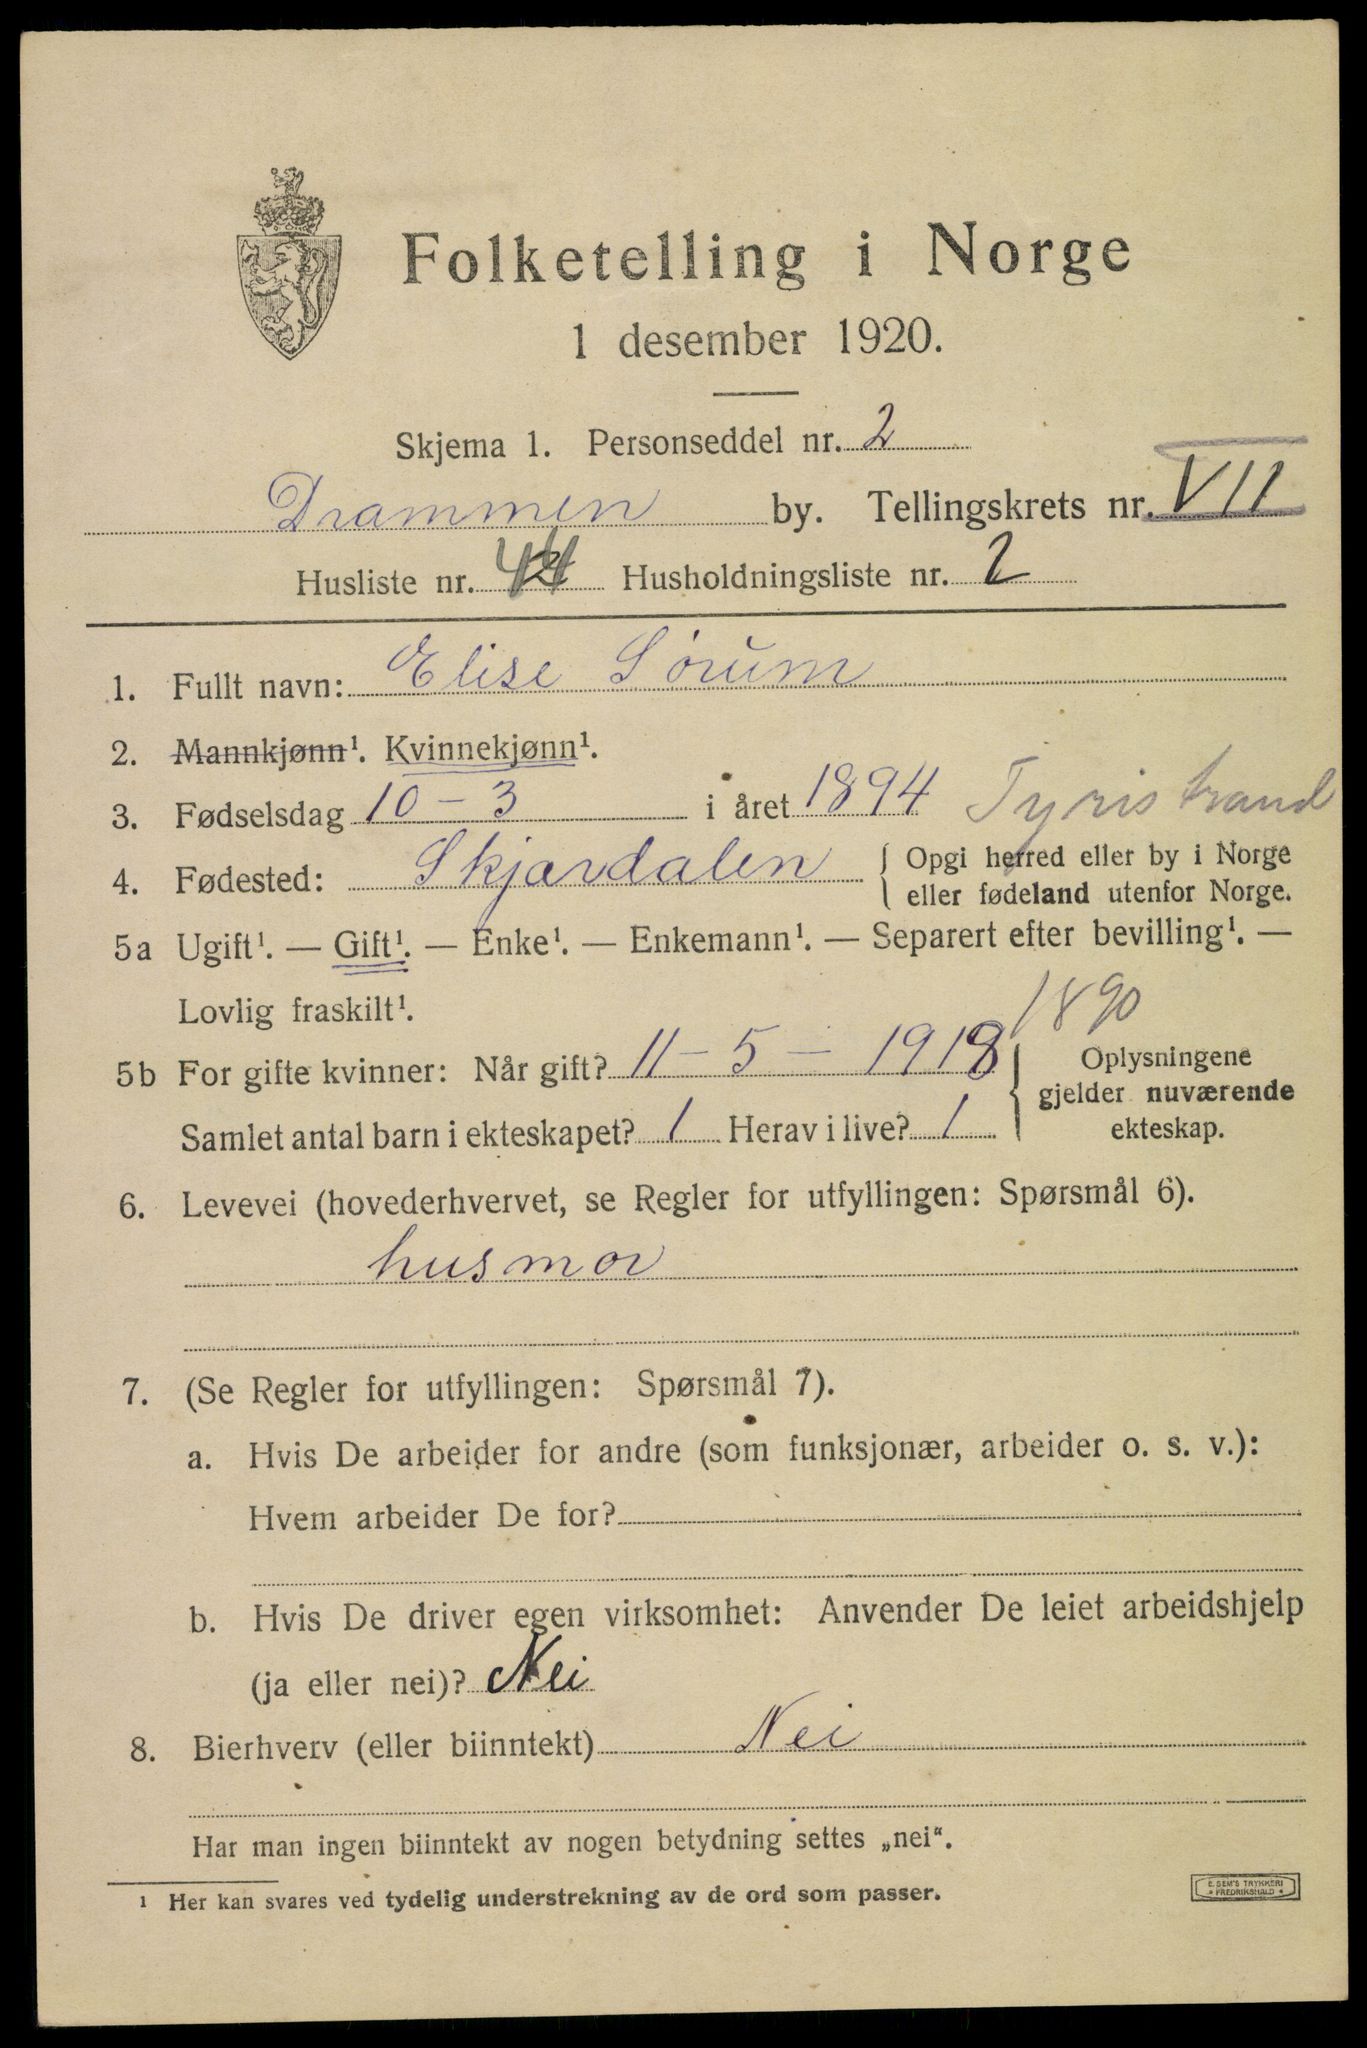 Folketelling i Norge
1 desember 1920.
Skjema 1. Personseddel nr. 2
Drammen by. Tellingskrets nr. VII
Husliste nr. 44 Husholdningsliste nr. 2
1. Fullt navn: Elise Sørum
2. Mannkjønn¹. Kvinnekjønn¹.
3. Fødselsdag 10 – 3 i året 1894 Tyristrand
4. Fødested: Skjærdalen { Opgi herred eller by i Norge
eller fødeland utenfor Norge.
5a Ugift¹. — Gift¹. — Enke¹. — Enkemann¹. — Separert efter bevilling¹. —
Lovlig fraskilt¹. 1890
5b For gifte kvinner: Når gift? 11 – 5 – 1918 { Oplysningene
gjelder nuværende
Samlet antal barn i ekteskapet? 1 Herav i live? 1 ekteskap.
6. Levevei (hovederhvervet, se Regler for utfyllingen: Spørsmål 6).
husmor
7. (Se Regler for utfyllingen: Spørsmål 7).
a. Hvis De arbeider for andre (som funksjonær, arbeider o. s. v.):
Hvem arbeider De for?
b. Hvis De driver egen virksomhet: Anvender De leiet arbeidshjelp
(ja eller nei)? Nei
8. Bierhverv (eller biinntekt) Nei
Har man ingen biinntekt av nogen betydning settes „nei“.
¹ Her kan svares ved tydelig understrekning av de ord som passer.
E. SEM'S TRYKKERI
* FREDRIKSHALD *